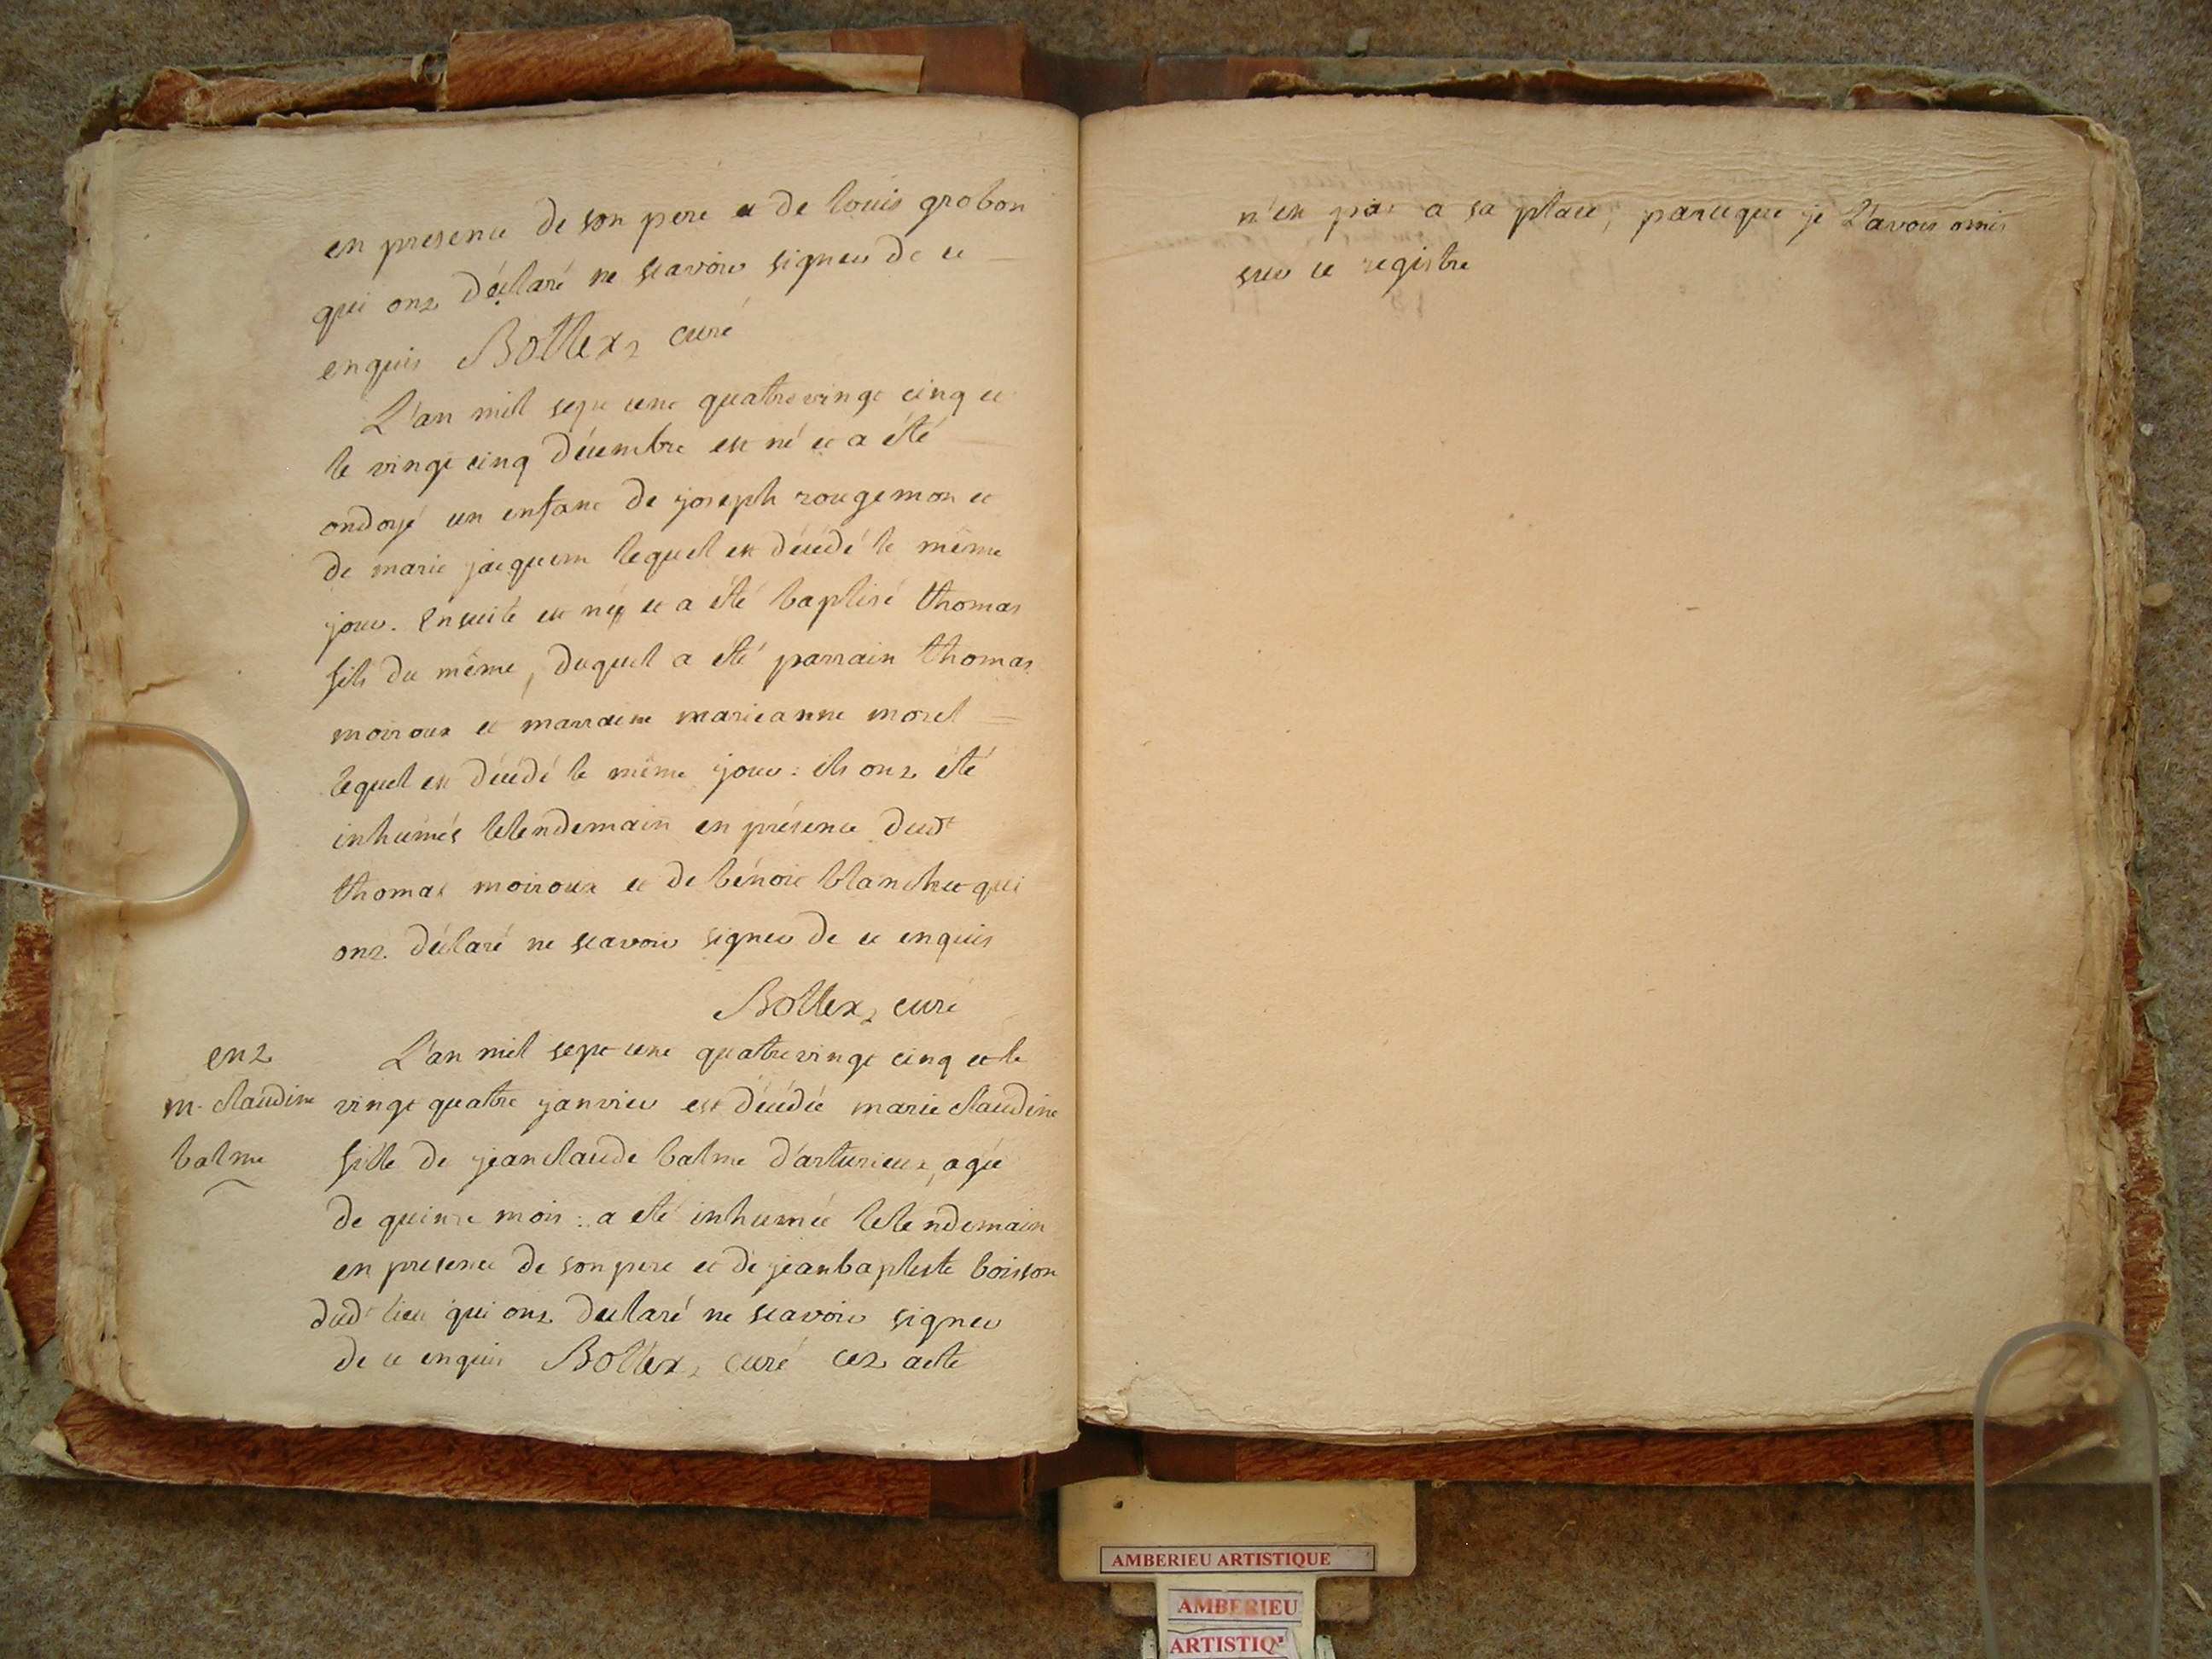 en presence de son pere et de louis grobon
qui ont déclaré ne scavoir signer de ce
enquis Bottex, curé
L'an mil sept cent quatrevingt cinq et
le vingt cinq décembre est né et a été
ondoyé un enfant de joseph rougemon et
de marie jacquem lequel est décédé le même
jour. Ensuite est né et a été baptisé thomas
fils du même, duquel a été parrain thomas
moiroux et marraine marieanne morel
lequel est décédé le même jour : ils ont été
inhumés lelendemain en présence dudt
thomas moiroux et de bénoit blanchet qui
ont déclaré ne scavoir signer de ce enquis
Bottex, curé
ent
m. claudine
balme
L'an mil sept cent quatrevingt cinq et le
vingt quatre janvier est décédée marie claudine
fille de jeanclaude balme d'arturieux, agée
de quinze mois : a eté inhumée lelendemain
en presence de son pere et de jeanbaptiste boisson
dudt lieu qui ont declaré ne scavoir signer
de ce enquis Bottex, curé cet acte
n'est pas a sa place, parceque je l'avois omis
sur ce registre
AMBERIEU ARTISTIQUE
AMBERIEU
ARTISTIQ